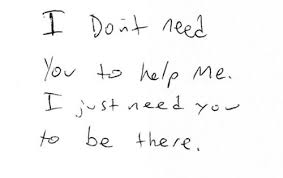 I Don't need
You to help me.
I just need you
to be there.